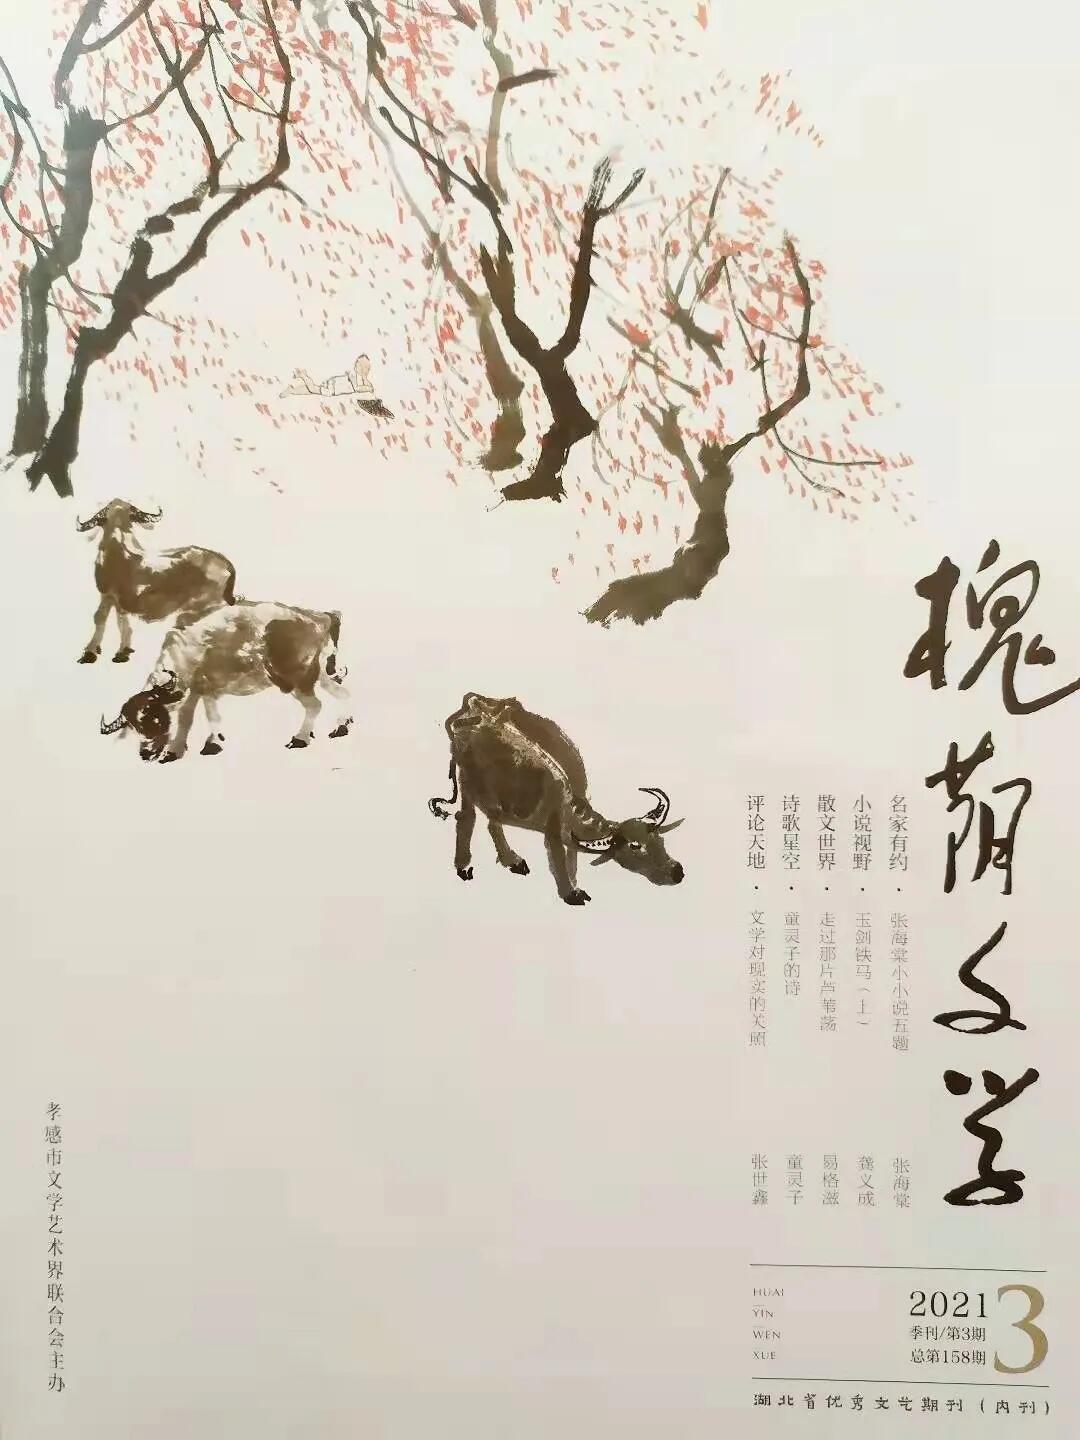 槐荫文学
名家有约·张海棠小小说五题 张海棠
小说视野·玉剑铁马（上） 龚义成
散文世界·走过那片芦苇荡 易格滋
诗歌星空·童灵子的诗 童灵子
评论天地·文学对现实的关照 张世鑫
孝感市文学艺术界联合会主办
HUAI
YIN
WEN
XUE
2021
季刊/第3期
总第158期
3
湖北省优秀文艺期刊（内刊）